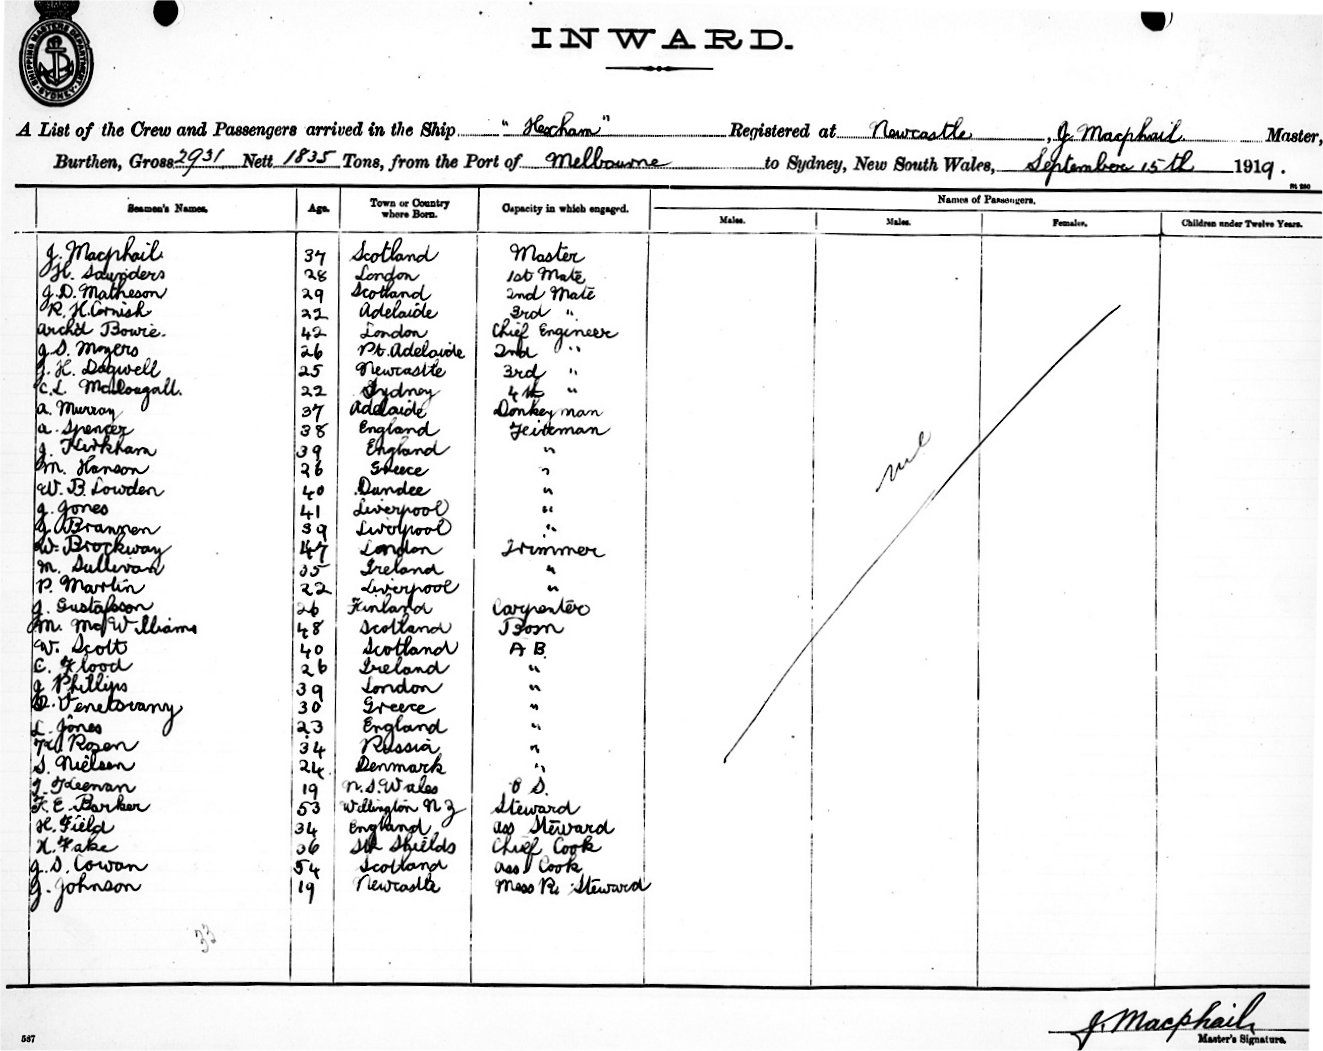 SHIPPING MASTERS DEPARTMENT SYDNEY
INWARD.
A List of the Crew and Passengers arrived in the Ship "Hexham" Registered at Newcastle, J. Macphail Master,
Burthen, Gross 2931 Nett 1835 Tons, from the Port of Melbourne to Sydney, New South Wales, September 15th 1919.
Seamen's Names. Age. Town or Country where Born. Capacity in which engaged. Names of Passengers.
Males. Males. Females. Children under Twelve Years.
J. Macphail 37 Scotland Master
H. Saunders 28 London 1st Mate
J. D. Matheson 29 Scotland 2nd Mate
R. H. Cornish 22 Adelaide 3rd "
Archd Bowie. 42 London Chief Engineer
J. S. Moyers 26 Pt. Adelaide 2nd "
J. H. Dagwell 25 Newcastle 3rd "
C. L. McDougall. 22 Sydney 4th "
A. Murray 37 Adelaide Donkeyman
A. Spencer 38 England Fireman
J. Kirkham 39 England "
M. Hanson 26 Greece "
W. B. Lowden 40 Dundee "
J. Jones 41 Liverpool "
J. Brannen 39 Liverpool "
W. Brockway 47 London Trimmer
M. Sullivan 35 Ireland "
P. Martin 22 Liverpool "
J. Gustafsson 26 Finland Carpenter
M. McWilliams 48 Scotland Bosn
W. Scott 40 Scotland A B
C. Flood 26 Ireland "
J Phillips 39 London "
D. Venetsvany 30 Greece "
L. Jones 23 England "
Rosen 34 Russia "
S. Nielsen 24 Denmark "
J. Keenan 19 N. S. Wales O S.
F. E. Barker 53 Wellington N Z Steward
H. Field 34 England Ass Steward
H. Fake 36 Sth Shields Chief Cook
J. S. Cowan 54 Scotland Ass Cook
J. Johnson 19 Newcastle Mess Rm Steward
nil
33
J. Macphail
Master's Signature.
587